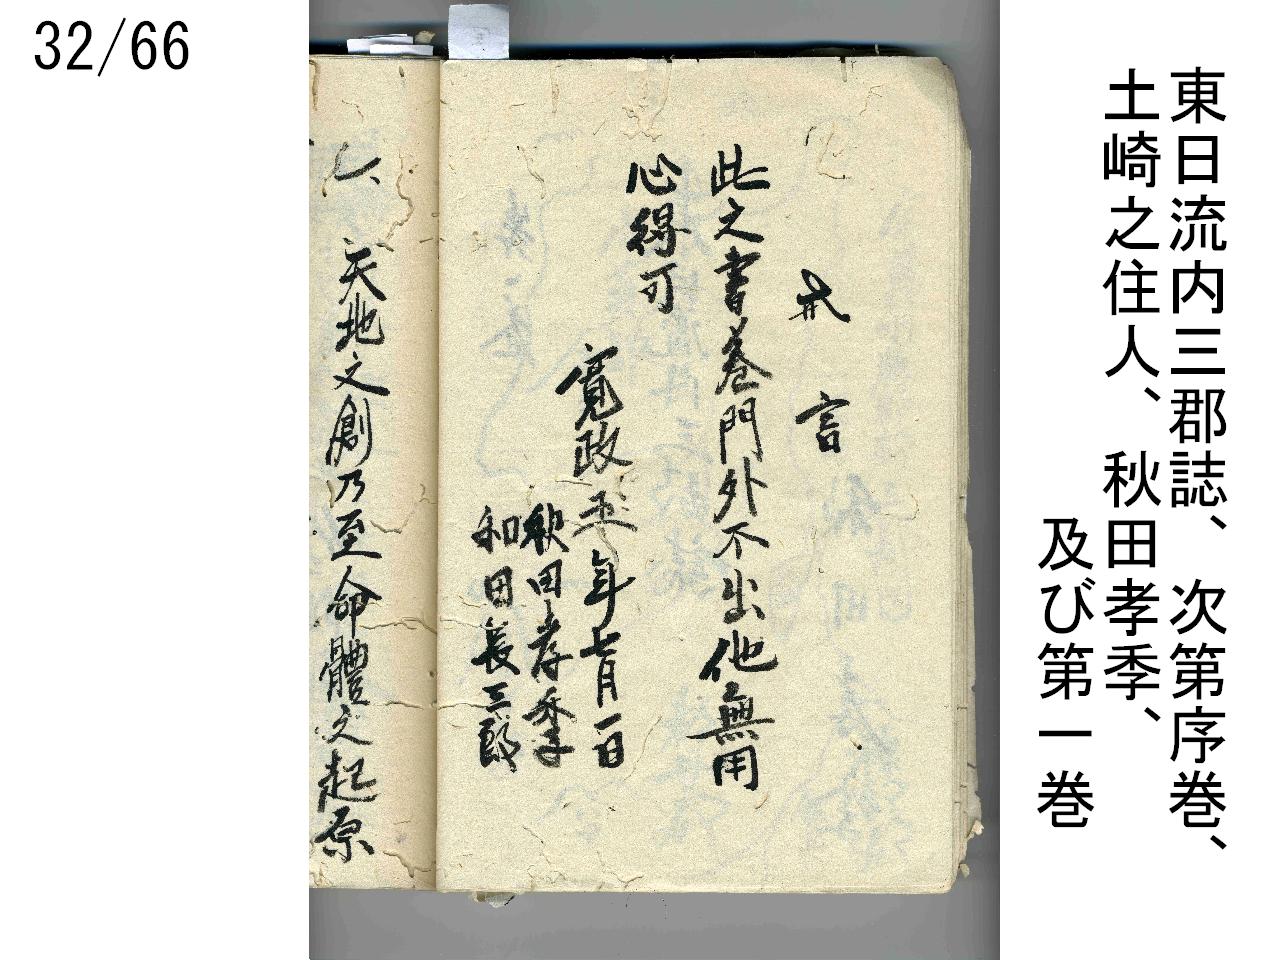 32/66
東日流内三郡誌、次第序巻、
土崎之住人、秋田孝季、
及び第一巻
戒言
此之書巻門外不出他無用
心得可
寛政五年七月一日
秋田孝季
和田長三郎
一、天地之創乃至命體之起原